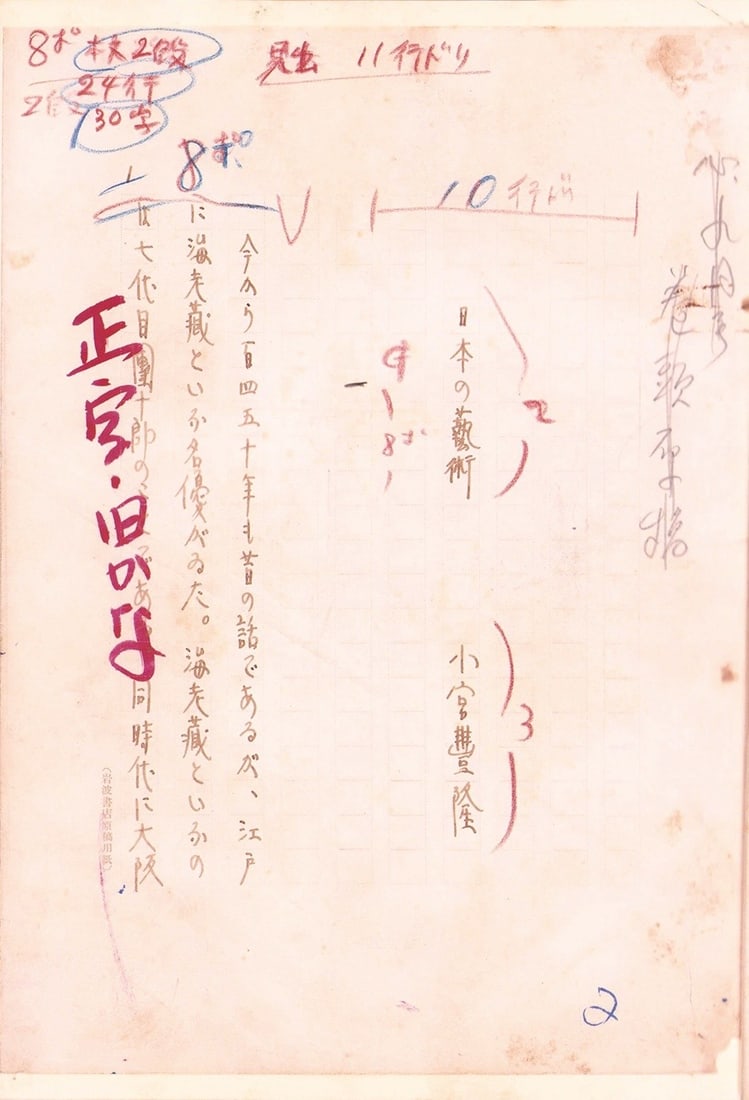 8ポ 2段
24行
30字
見出 11行ドリ
8ポ
10行ドリ
九月号
巻頭原稿
日本の藝術
2
小宮豐隆
3
8ポ
一
今から百四五十年も昔の話であるが、江戸
に海老藏といふ名優がゐた。海老藏といふの
は七代目團十郎の であ 同時代に大阪
正字・旧かな
(岩波書店原稿用紙)
2